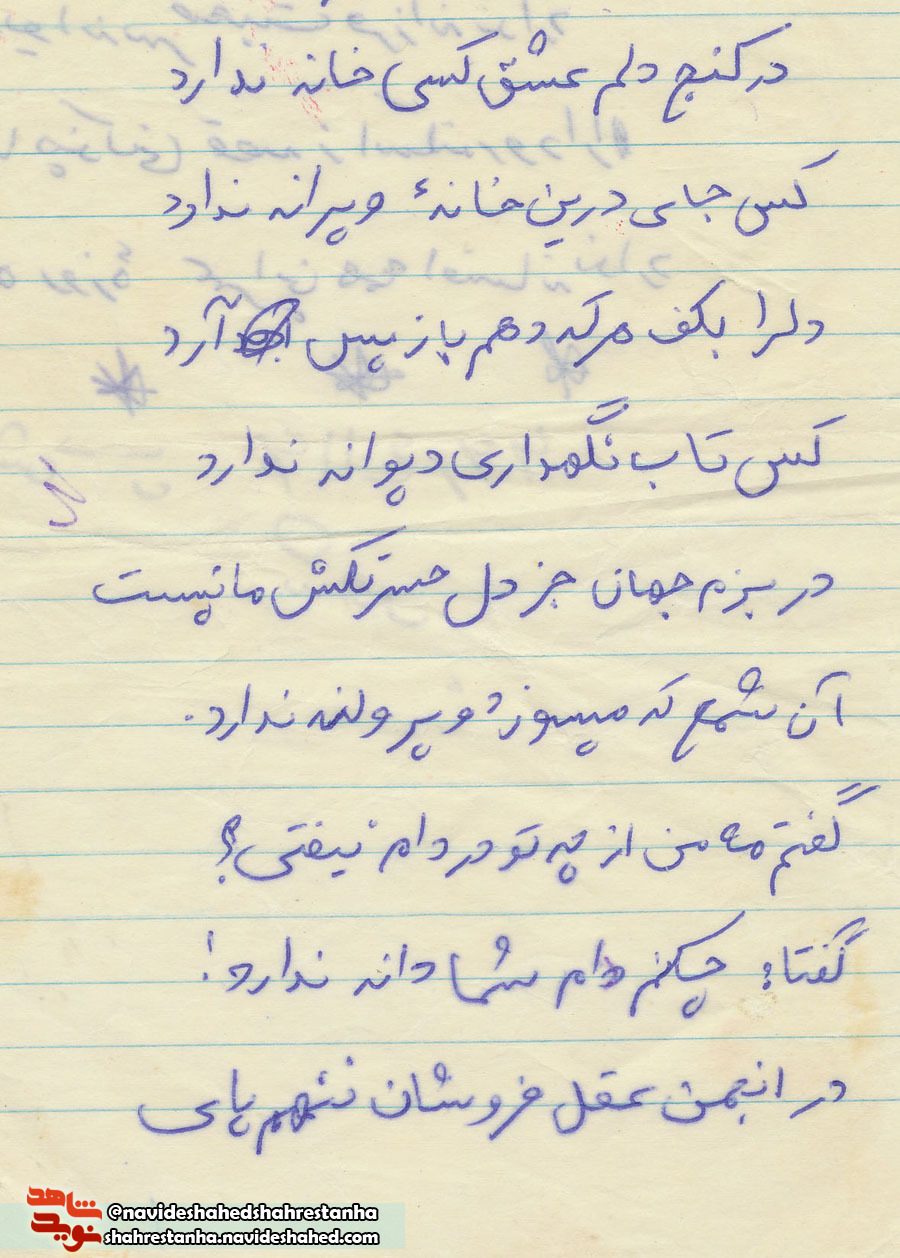 در کنج دلم عشق کسی خانه ندارد
کس جای درین خانهٔ ویرانه ندارد
دلرا بکف هر که دهم باز پس آرد
کس تاب نگهداری دیوانه ندارد
در بزم جهان جز دل حسرتکش ما نیست
آن شمع که میسوزد و پروانه ندارد.
گفتم مه من از چه تو در دام نیفتی؟
گفتا: چکنم دام شما دانه ندارد!
در انجمن عقل فروشان ننهم پای
شاهد
نوید
@navideshahedshahrestanha
shahrestanha.navideshahed.com